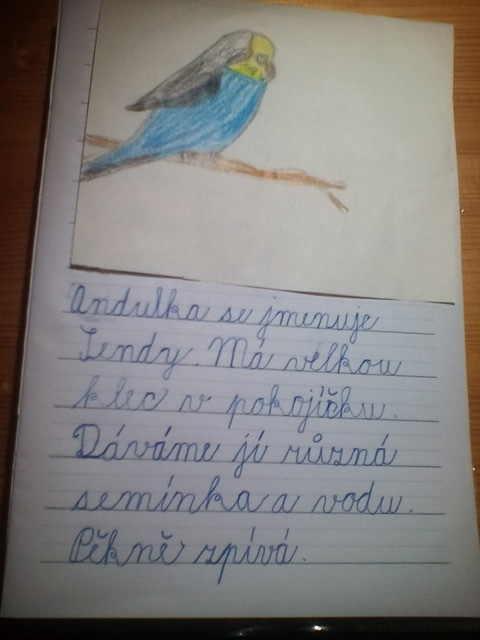 Andulka se jmenuje
Žendy. Má velkou
klec v pokojíčku.
Dáváme jí různá
semínka a vodu.
Pěkně zpívá.